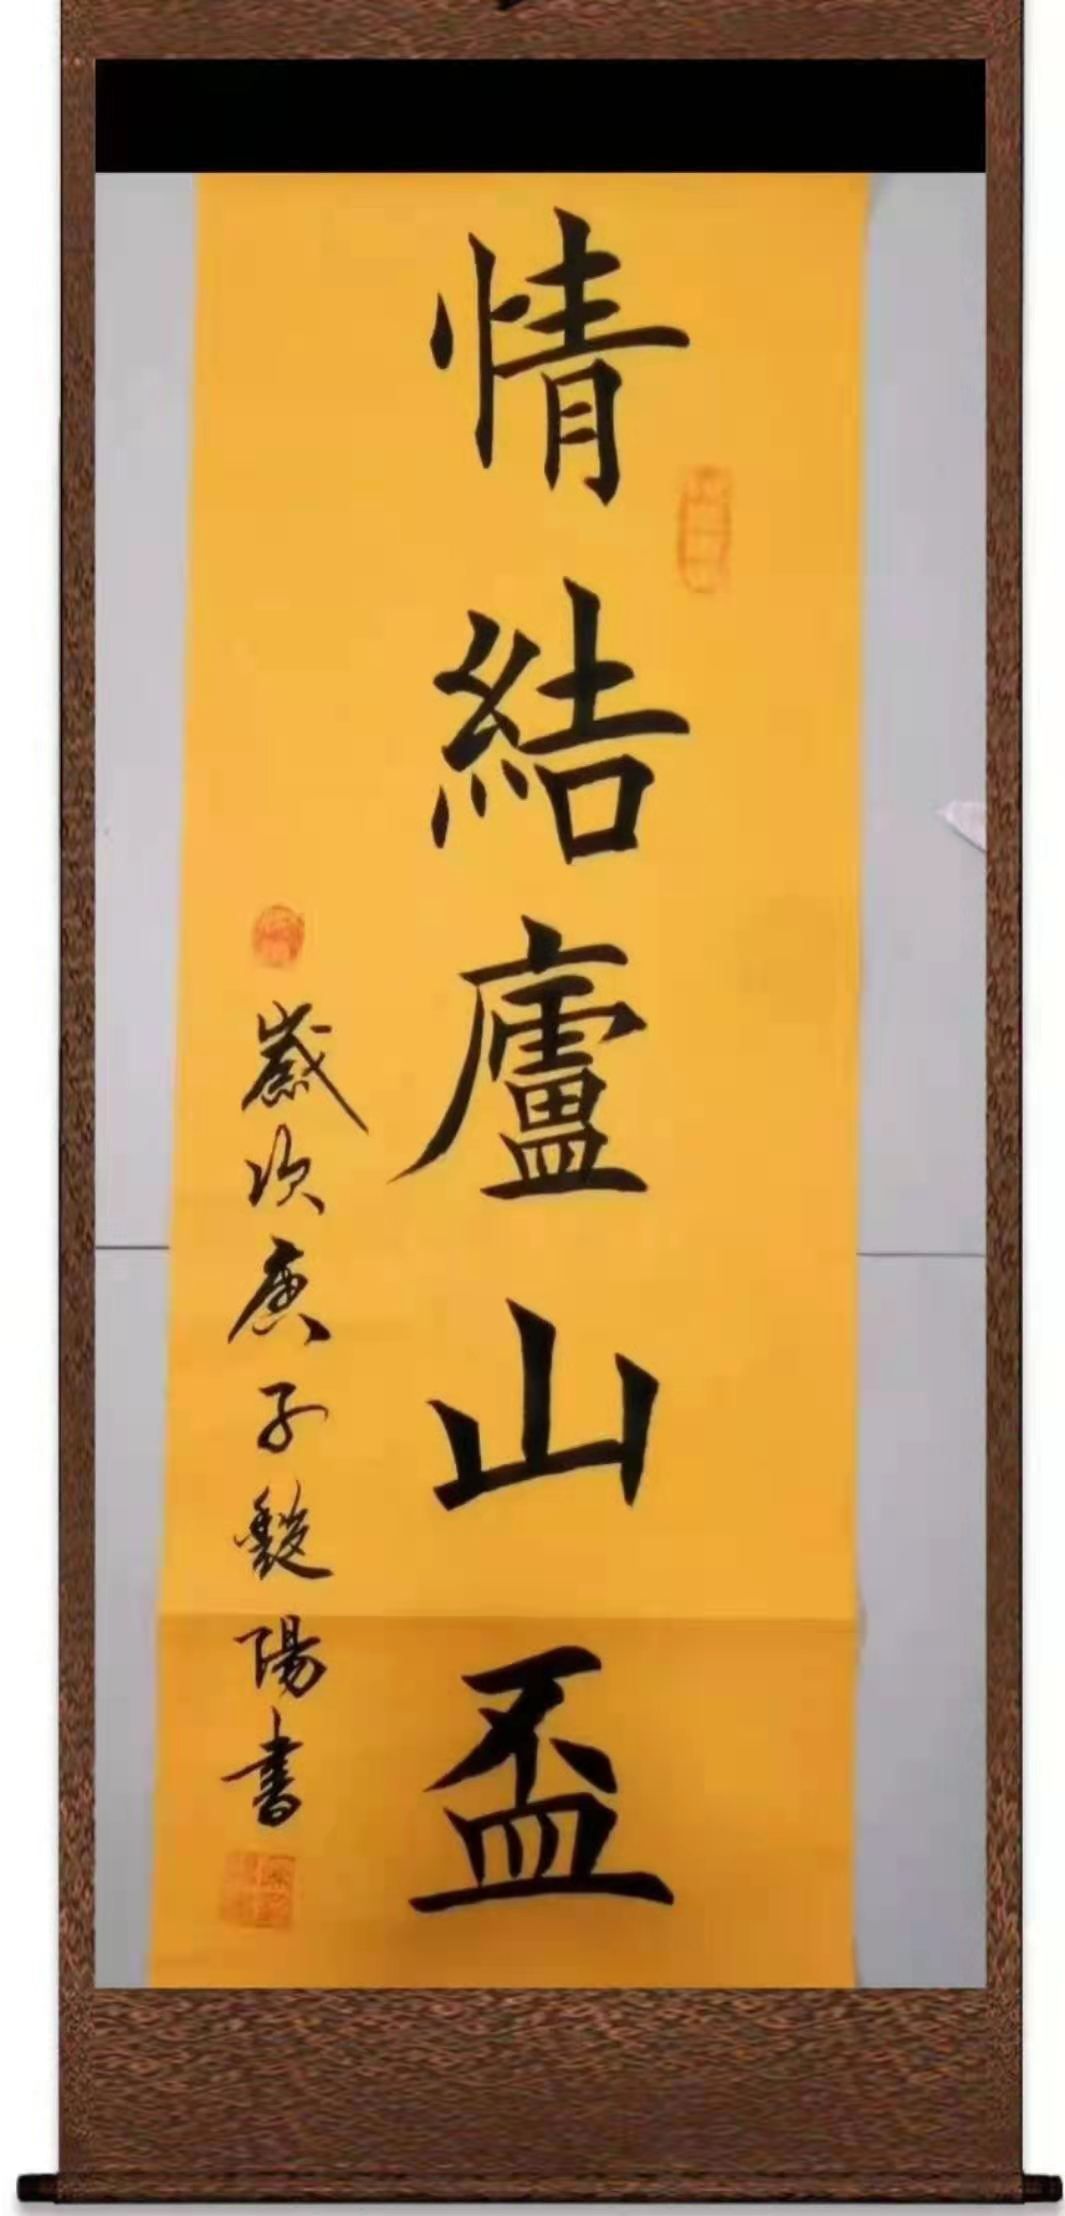 情結廬山盃
歲次庚子 陽書